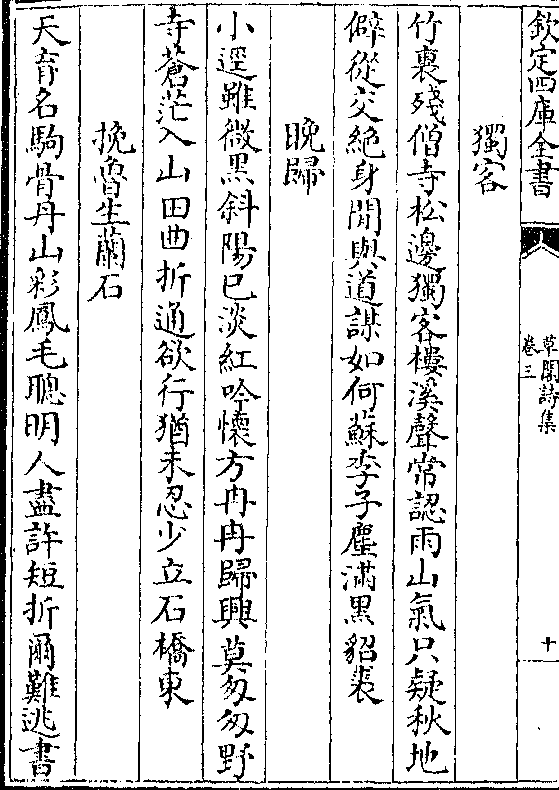 欽定四庫全書
草閣詩集
卷三
十
獨客
竹裏殘僧寺松邊獨客樓溪聲常認雨山氣只疑秋地
僻從交絶身閒與道謀如何蘇季子塵滿黒貂裘
晩歸
小逕雖微黒斜陽已淡紅吟懷方冉冉歸興莫匆匆野
寺蒼茫入山田曲折通欲行猶未忍少立石橋東
挽魯生蘭石
天育名駒骨丹山彩鳳毛聰明人盡許短折爾難逃書